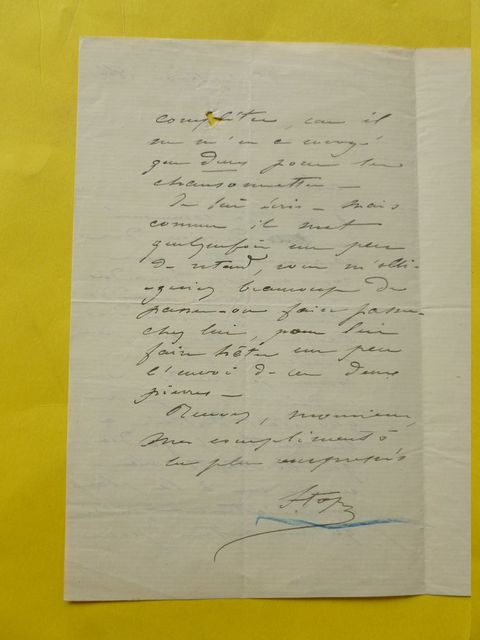 compléter, car il
ne m'en a envoyé
que deux pour les
chansonnettes —
Je lui écris — mais
comme il met
quelquefois un peu
de retard, vous m'obli-
-geriez beaucoup de
passer ou faire passer
chez lui, pour lui
faire hâter un peu
l'envoi de ces deux
pierres —
Recevez, monsieur,
mes compliments
les plus empressés
Stop